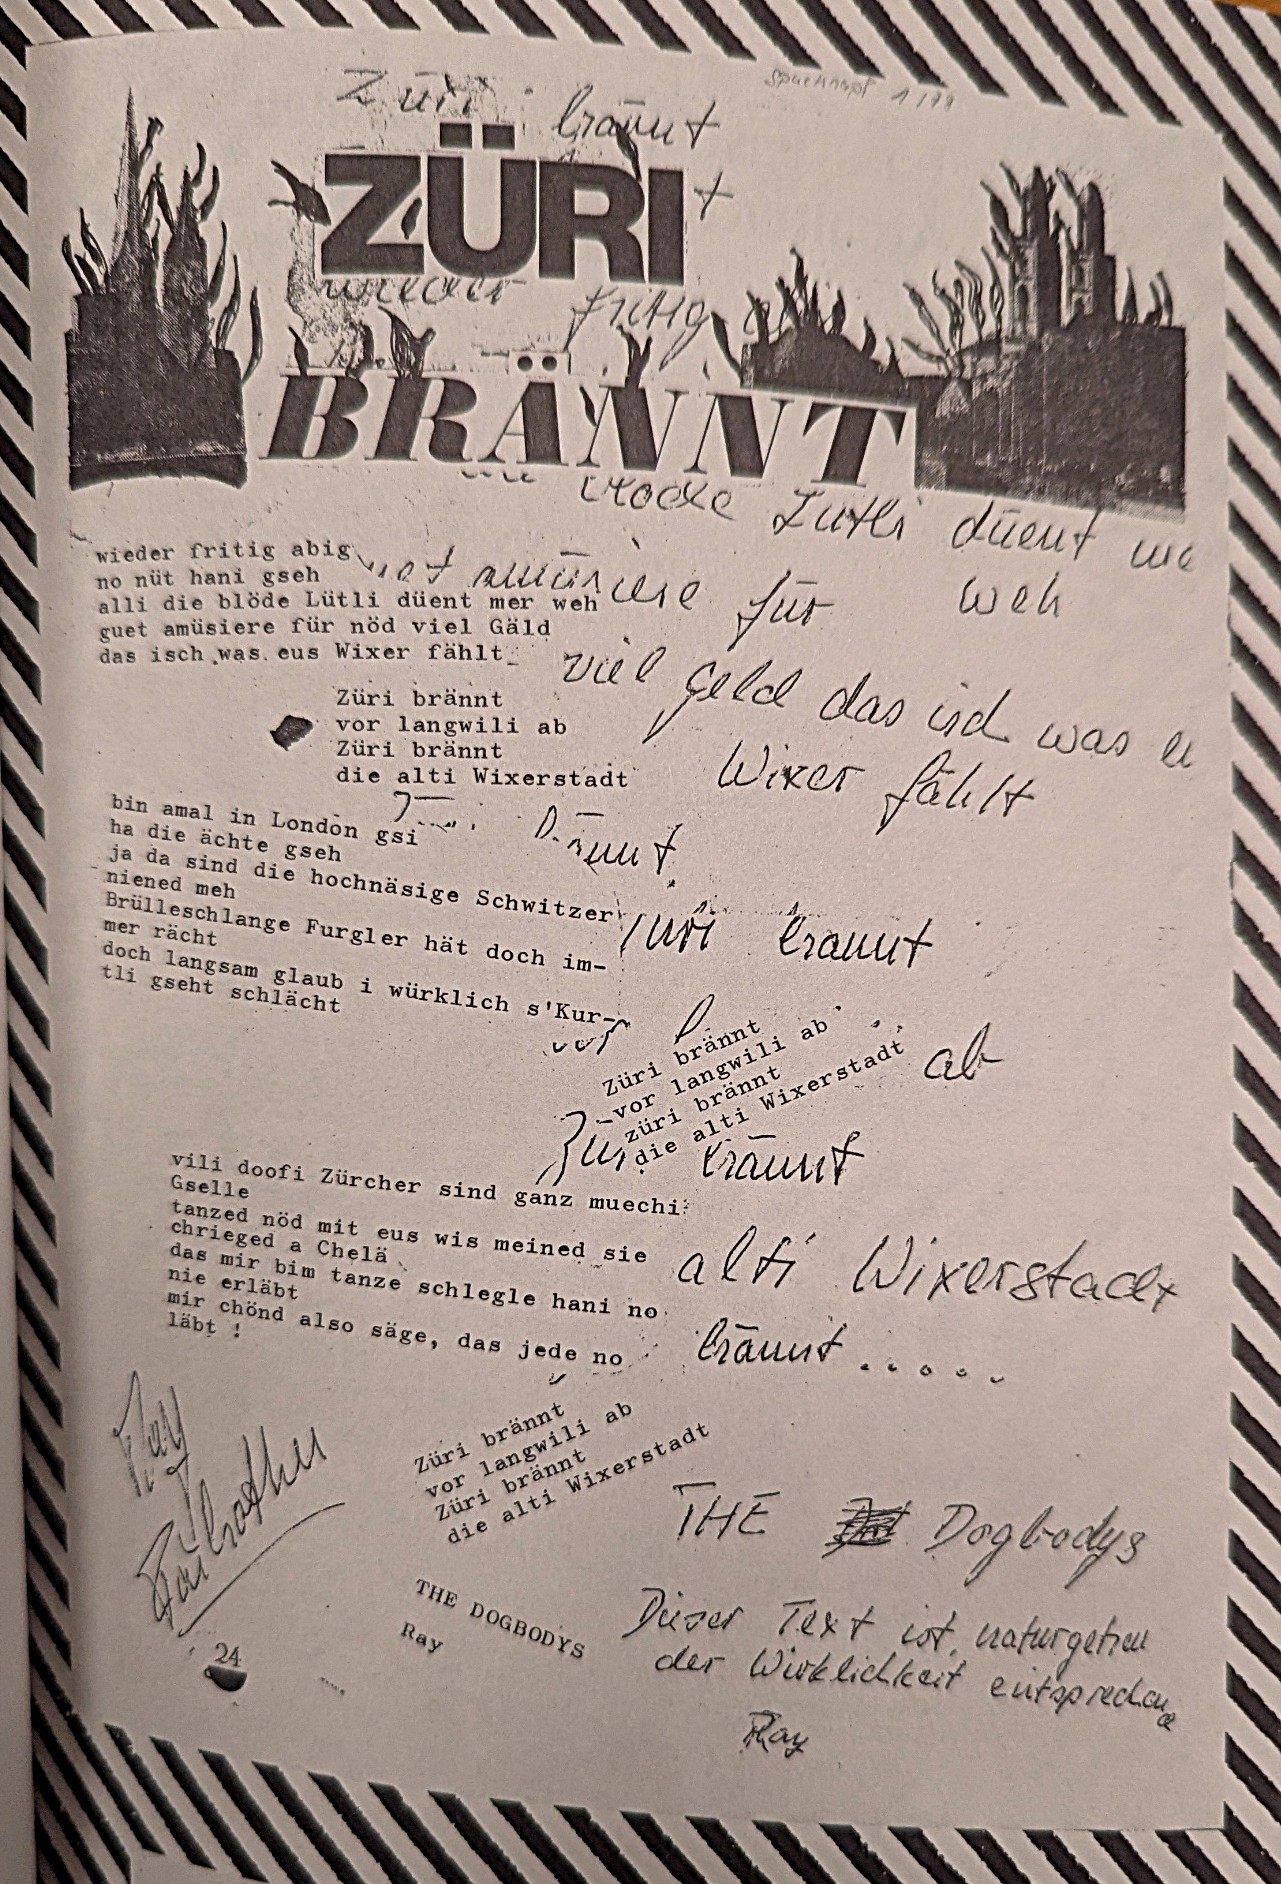 Züri brännt
Spucknapf 1/79
ZÜRI
wieder fritig
BRÄNNT
Lütli düent
wieder fritig abig
no nüt hani gseh
alli die blöde Lütli düent mer weh
guet amüsiere für nöd viel Gäld
das isch was eus Wixer fählt
amüsiere für weh
viel geld das isch was
Wixer fählt
Züri brännt
vor langwili ab
Züri brännt
die alti Wixerstadt
bin amal in London gsi
ha die ächte gseh
ja da sind die hochnäsige Schwitzer
niened meh
Brülleschlange Furgler hät doch im-
mer rächt
doch langsam glaub i würklich s'Kur-
tli gseht schlächt
brännt
Züri brännt
vor
ab
Züri brännt
vor langwili ab
züri brännt
die alti Wixerstadt
Züri brännt
vili doofi Zürcher sind ganz muechi
Gselle
tanzed nöd mit eus wis meined sie
chrieged a Chelä
das mir bim tanze schlegle hani no
nie erläbt
mir chönd also säge, das jede no
läbt !
alti Wixerstadt
brännt . . . . .
Züri brännt
vor langwili ab
Züri brännt
die alti Wixerstadt
Ray
THE DOGBODYS
Ray
THE Dogbodys
Dieser Text ist naturgetreu
der Wirklichkeit entsprechend
Ray
24